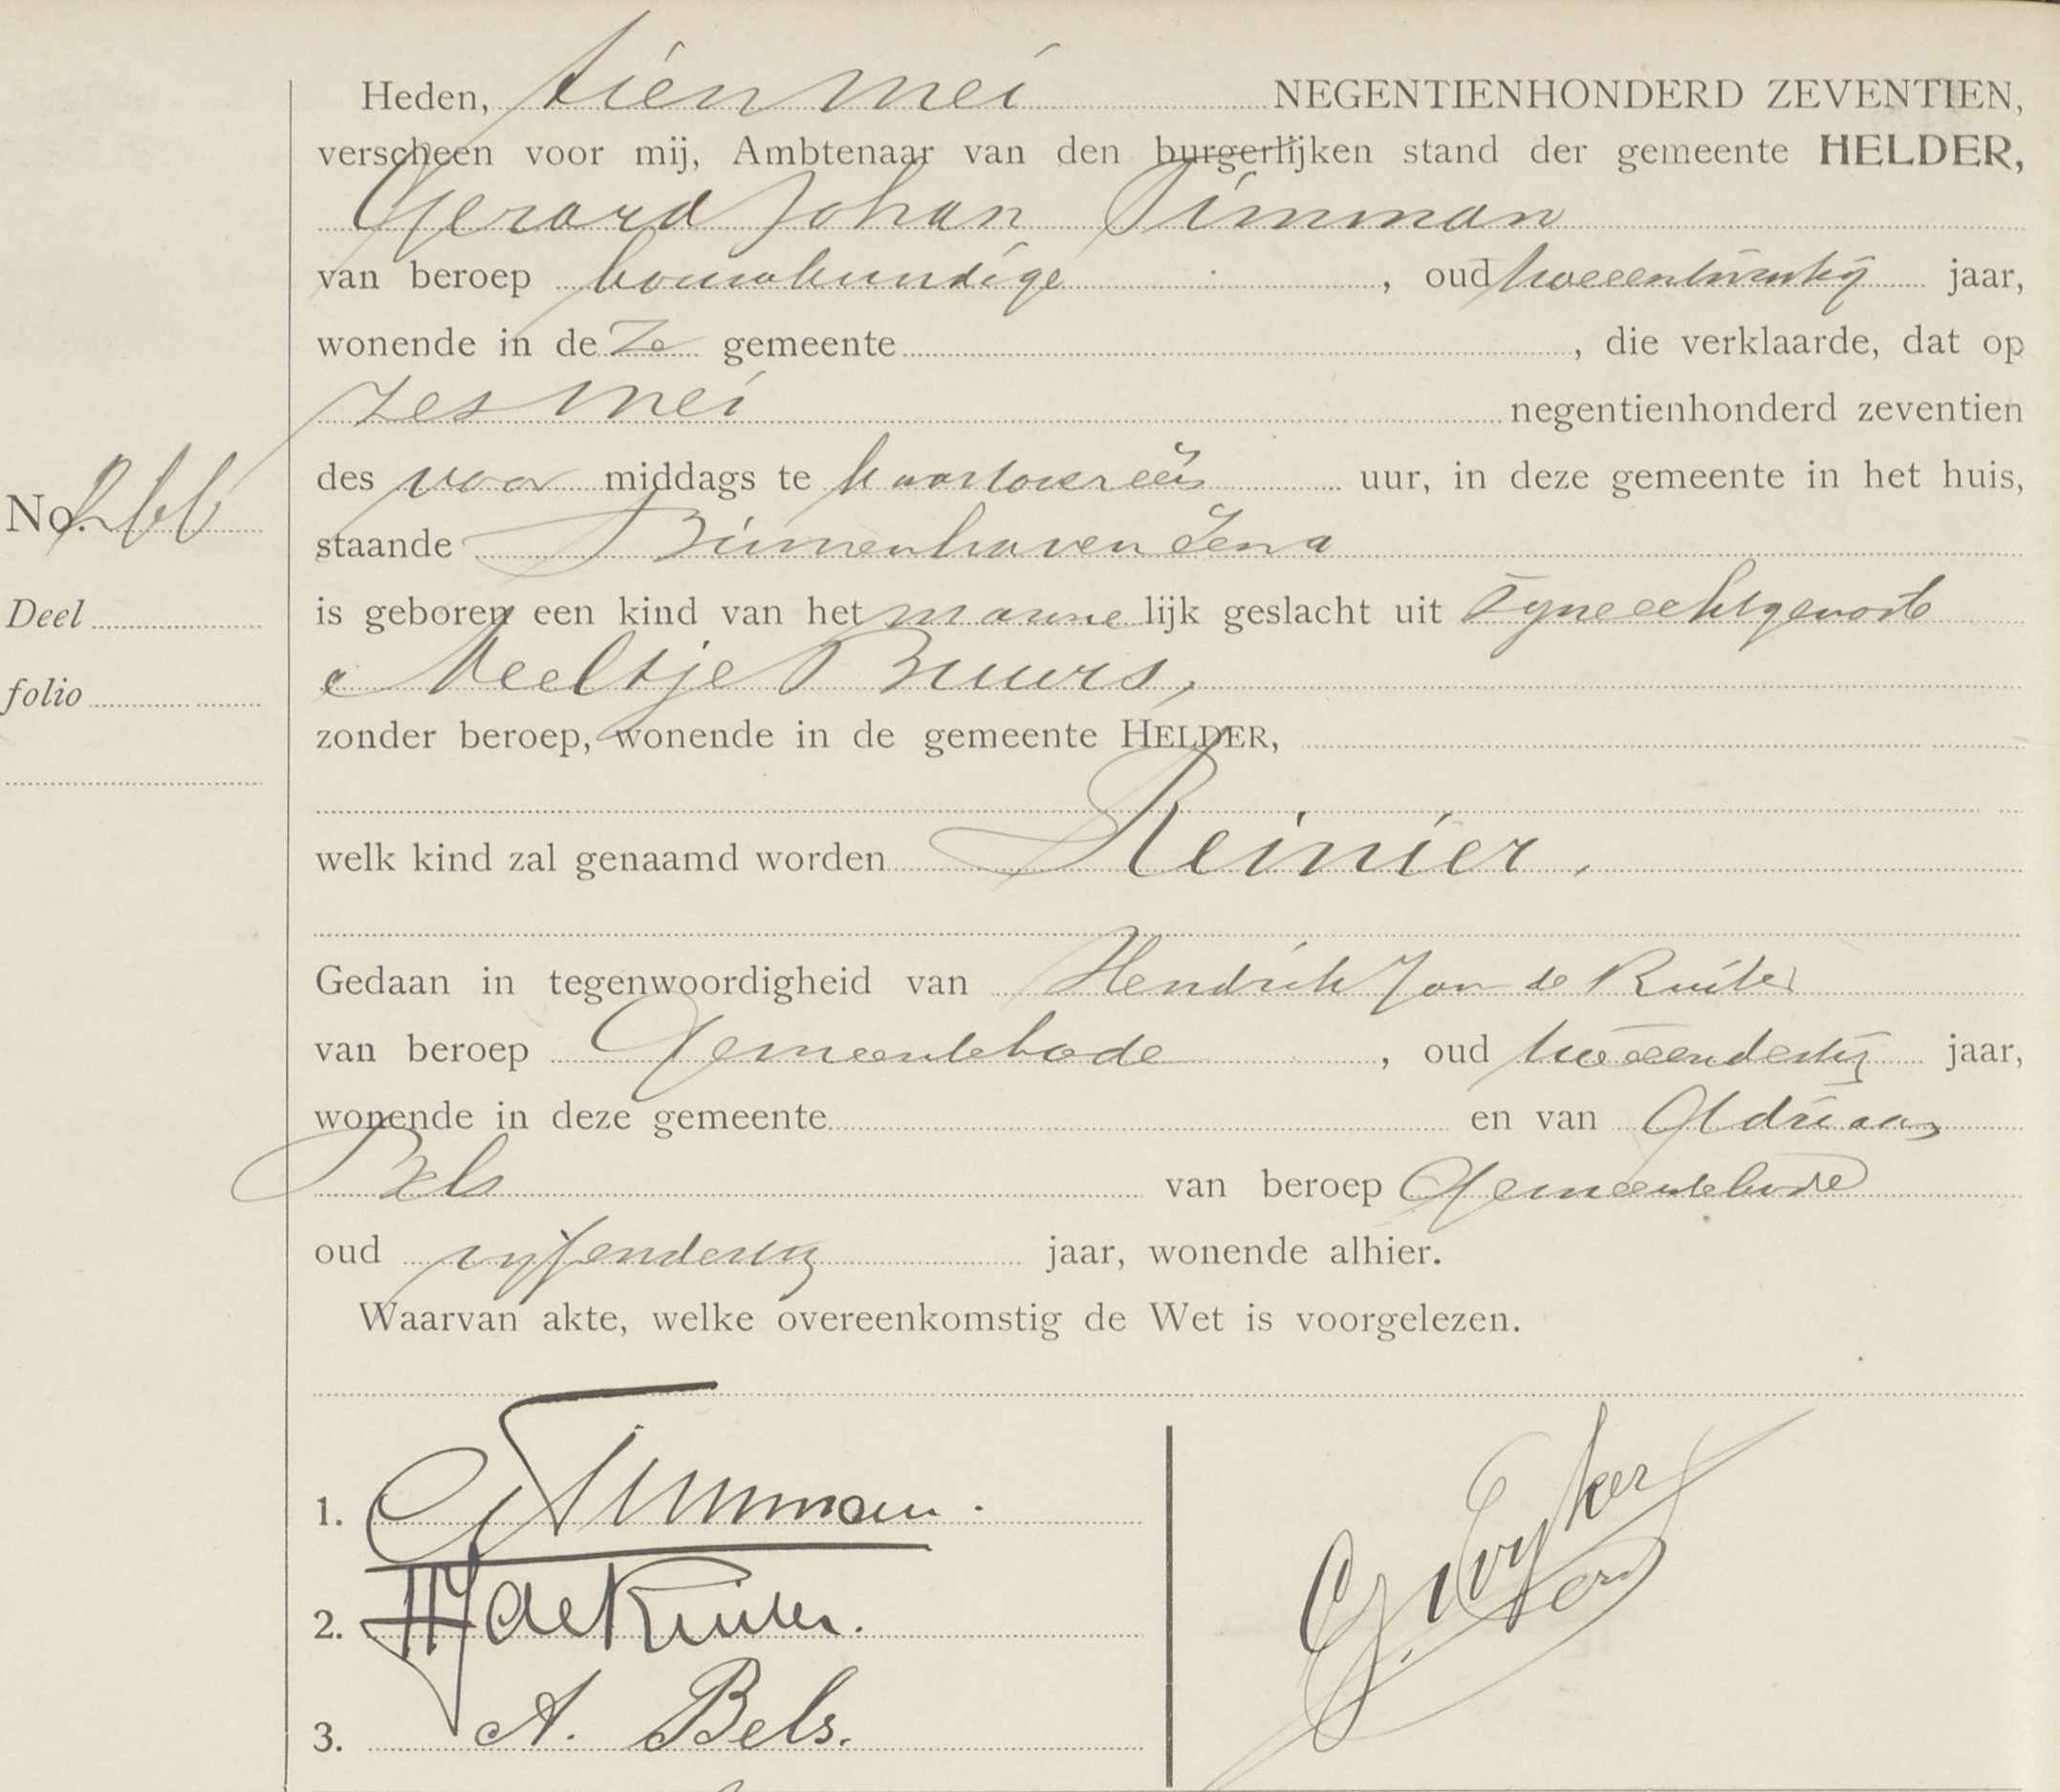 Heden, tien mei NEGENTIENHONDERD ZEVENTIEN,
verscheen voor mij, Ambtenaar van den burgerlijken stand der gemeente HELDER,
Gerard Johan Timman
van beroep bouwkundige, oud tweeentwintig jaar,
wonende in deze gemeente, die verklaarde, dat op
zes mei negentienhonderd zeventien
des voor middags te kwartoverеen uur, in deze gemeente in het huis,
No. 266
staande Binnenhaven
Deel
is geboren een kind van het mannelijk geslacht uit zyne echtgenoote
Neeltje Buurs,
folio
zonder beroep, wonende in de gemeente HELDER,
welk kind zal genaamd worden Reinier.
Gedaan in tegenwoordigheid van Hendrik Jan de Ruiter
van beroep Gemeentebode, oud tweeendertig jaar,
wonende in deze gemeente en van Adriaan
Bels van beroep Gemeentebode
oud vyfendertig jaar, wonende alhier.
Waarvan akte, welke overeenkomstig de Wet is voorgelezen.
1. GJTimman.
2. HJ de Ruiter.
3. A. Bels.